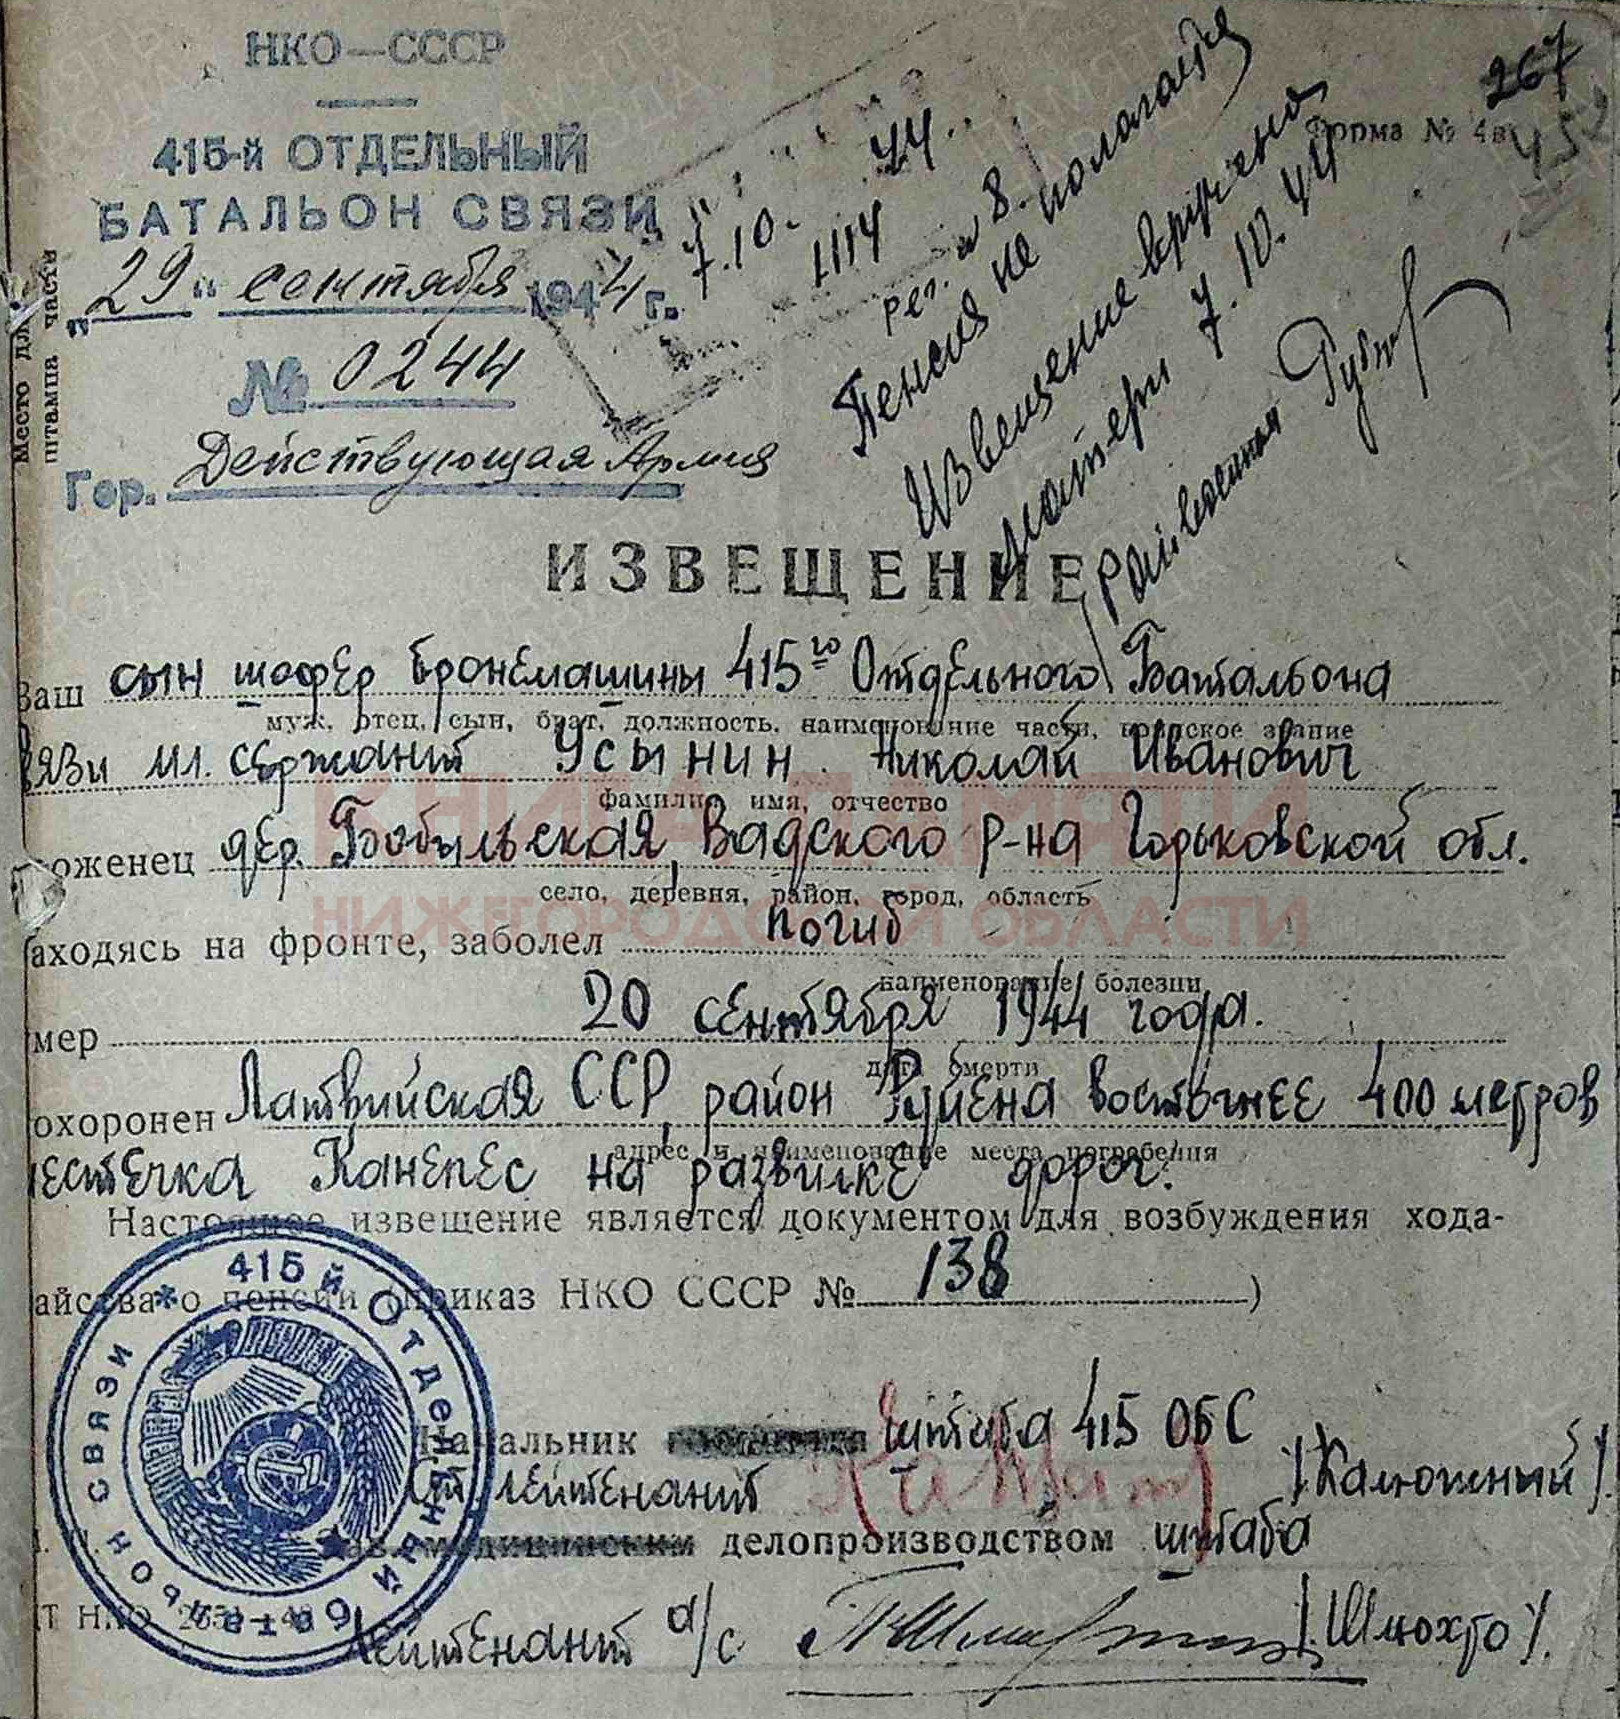 НКО—СССР
415-й ОТДЕЛЬНЫЙ
БАТАЛЬОН СВЯЗИ
„29" сентября 1944 г.
№ 0244
Гор. Действующая Армия
Место для
штампа части
267
Форма № 4в
452
7.10. 44.
1114
рег. № 8.
Пенсия не полагается
Извещение вручено
матери 7.10.44
ИЗВЕЩЕНИЕ
Ваш сын шофер бронемашины 415го Отдельного Батальона
муж, отец, сын, брат, должность, наименование части, воинское звание
вязи мл. сержант Усынин Николай Иванович
фамилия, имя, отчество
роженец дер. Бобыльская, Вадского р-на Горьковской обл.
село, деревня, район, город, область
аходясь на фронте, заболел погиб
наименование болезни
мер 20 сентября 1944 года.
дата смерти
охоронен Латвийская ССР, район Руиена восточнее 400 метров
адрес и наименование места погребения
местечка Канепес на развилке дорог.
Настоящее извещение является документом для возбуждения хода-
айства о пенсии (приказ НКО СССР № 138)
Начальник штаба 415 ОБС
ст. лейтенант /Калюжный/.
Зав. медицинским делопроизводством штаба
Лейтенант а/с /Шмохго/.
415й ОТДЕЛЬНЫЙ БАТАЛЬОН СВЯЗИ
КНИГА ПАМЯТИ
НИЖЕГОРОДСКОЙ ОБЛАСТИ